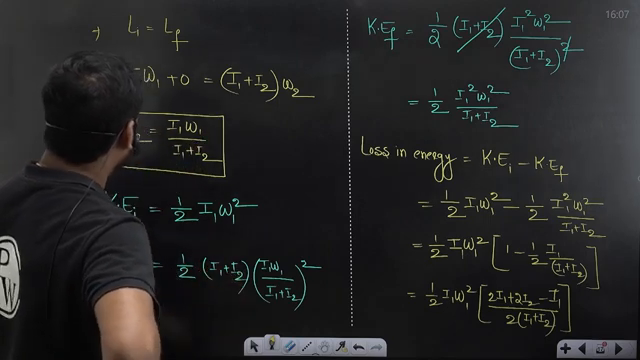 16:07
→ Li = Lf
W1 + 0 = (I1+I2) ω2
= I1 ω1 / I1+I2
K.Ei = 1/2 I1 ω1²
= 1/2 (I1+I2) (I1ω1 / I1+I2)²
K.Ef = 1/2 (I1+I2) I1² ω1² / (I1+I2)²
= 1/2 I1² ω1² / I1+I2
Loss in energy = K.Ei - K.Ef
= 1/2 I1ω1² - 1/2 I1² ω1² / I1+I2
= 1/2 I1ω1² [1 - 1/2 I1 / (I1+I2)]
= 1/2 I1ω1² [2I1+2I2-I1 / 2(I1+I2)]
P
W